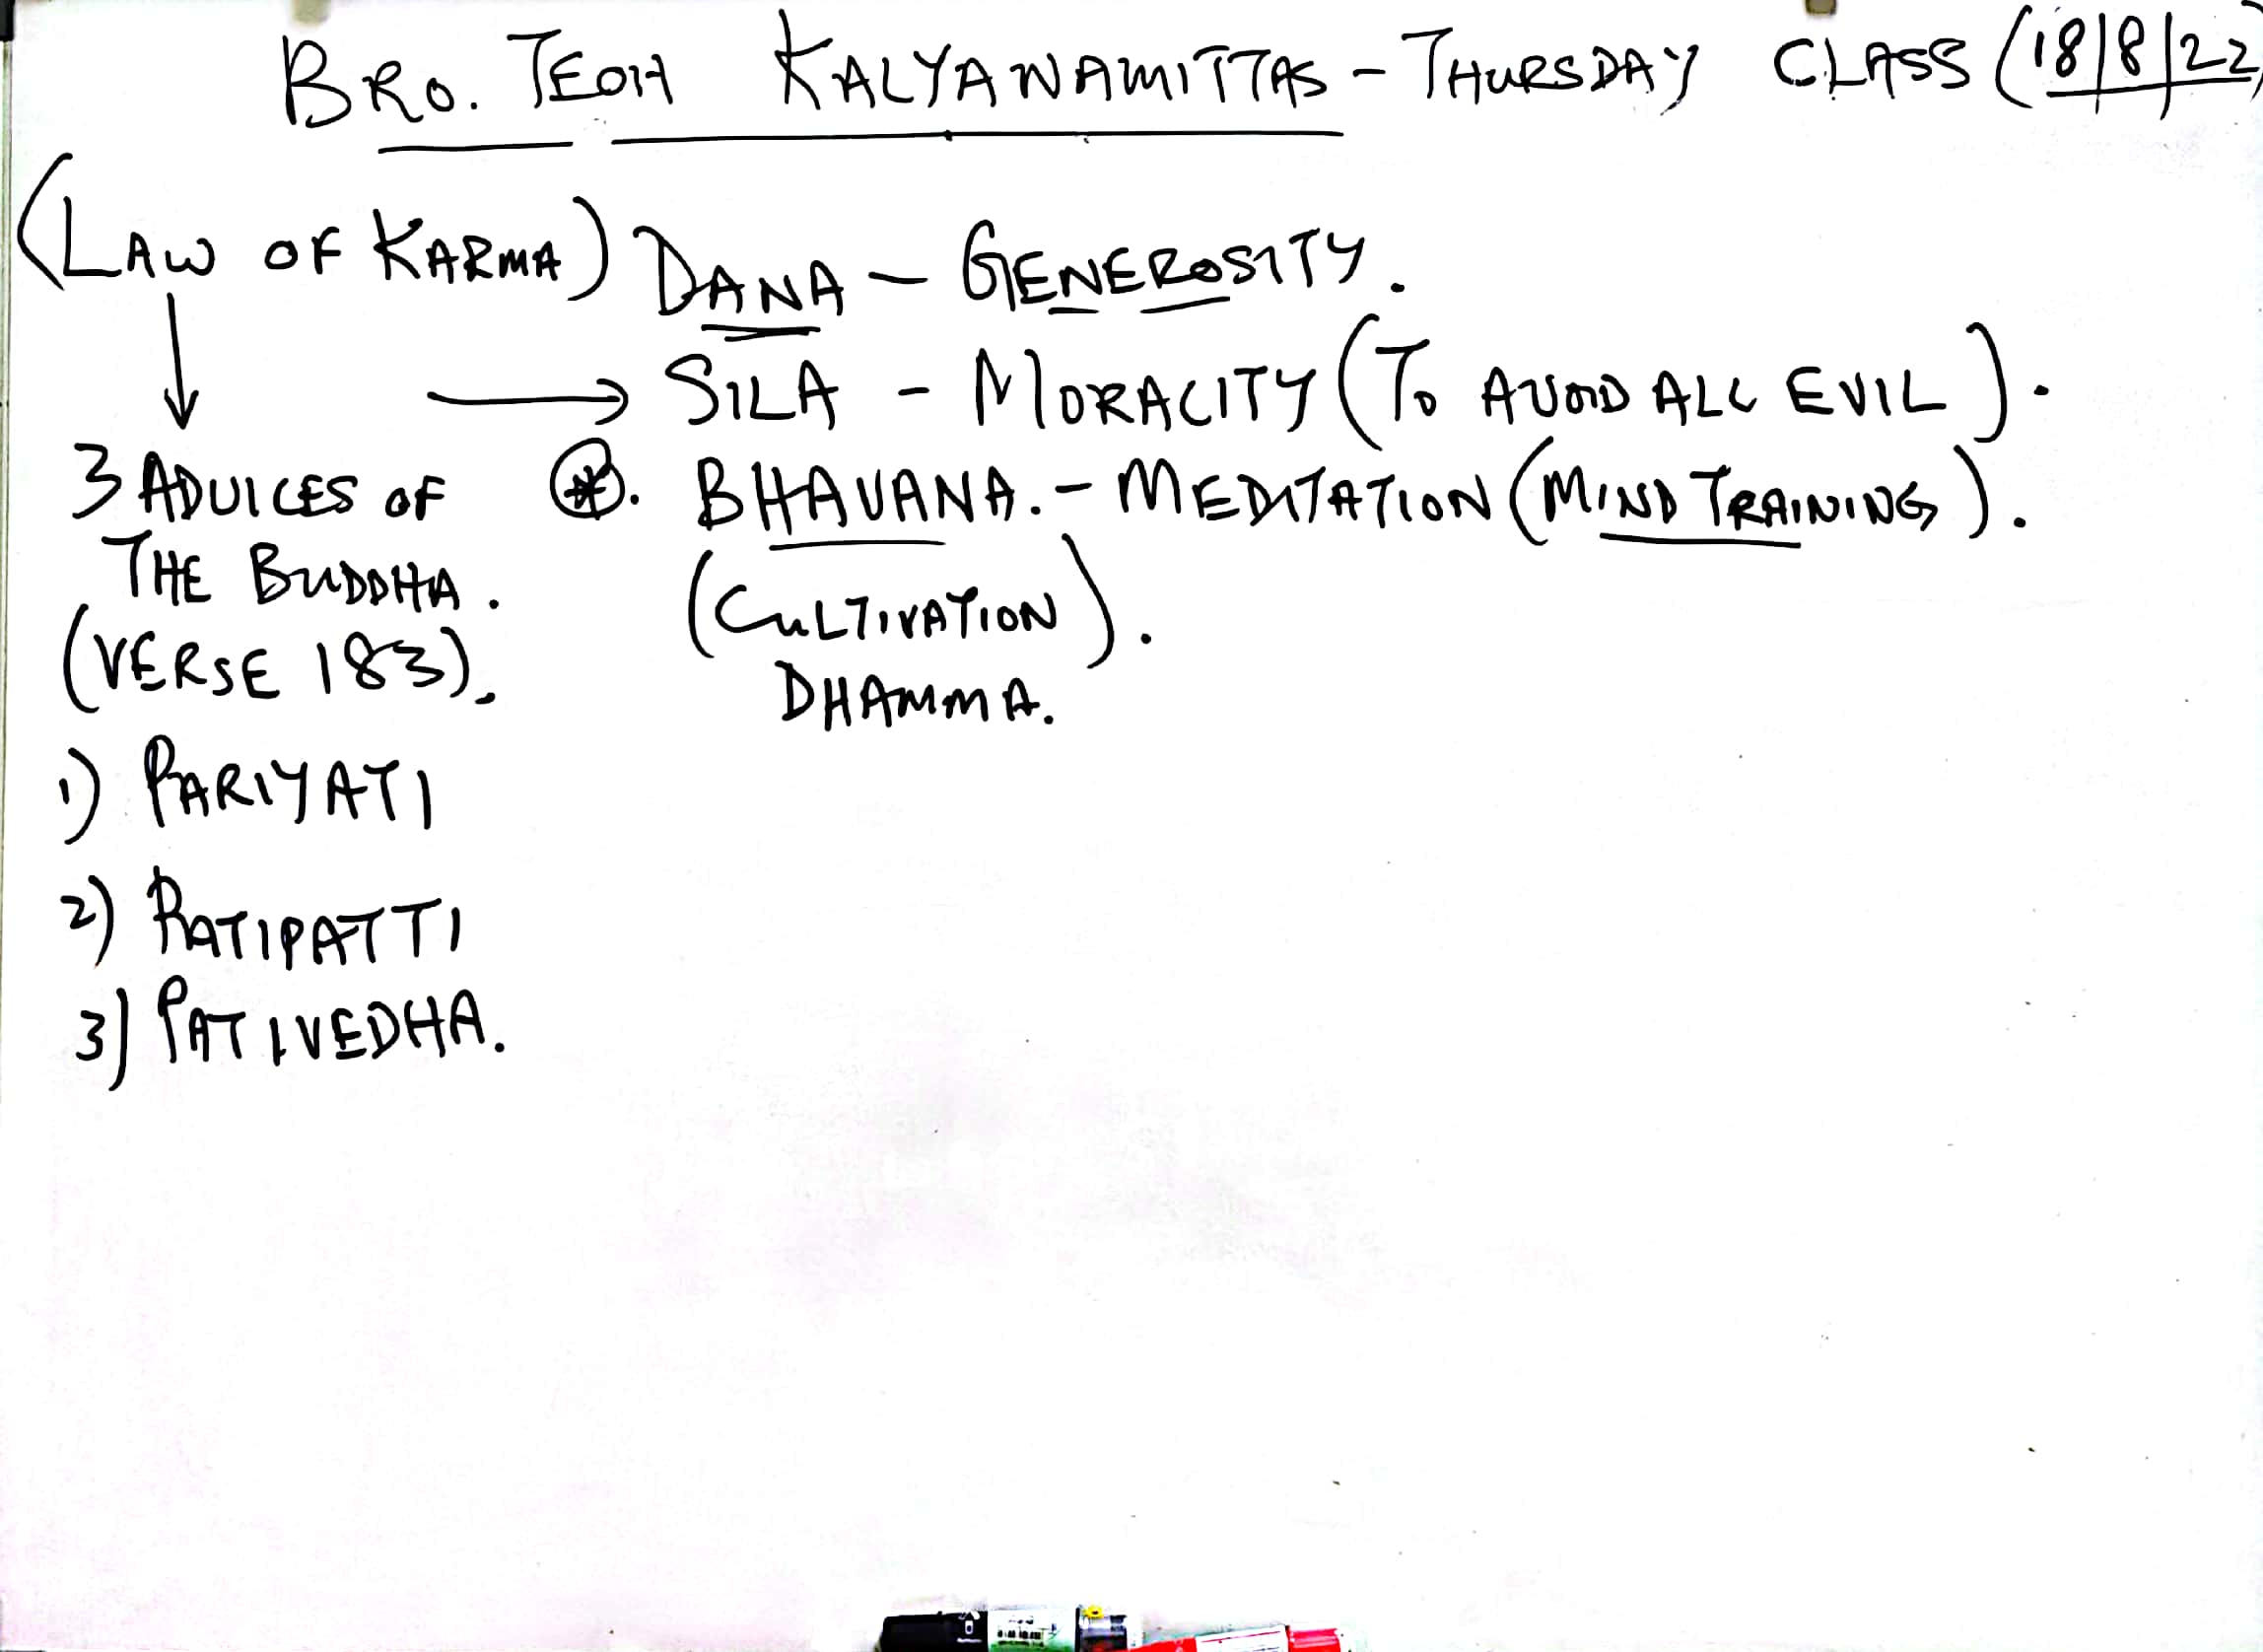 BRO. TEOH KALYANAMITTAS - THURSDAY CLASS (18/8/22)
(LAW OF KARMA) DANA - GENEROSITY.
→ SILA - MORALITY (TO AVOID ALL EVIL).
3 ADVICES OF ⊛. BHAVANA. - MEDITATION (MIND TRAINING).
THE BUDDHA. (CULTIVATION).
(VERSE 183). DHAMMA.
1) PARIYATI
2) PATIPATTI
3) PATIVEDHA.